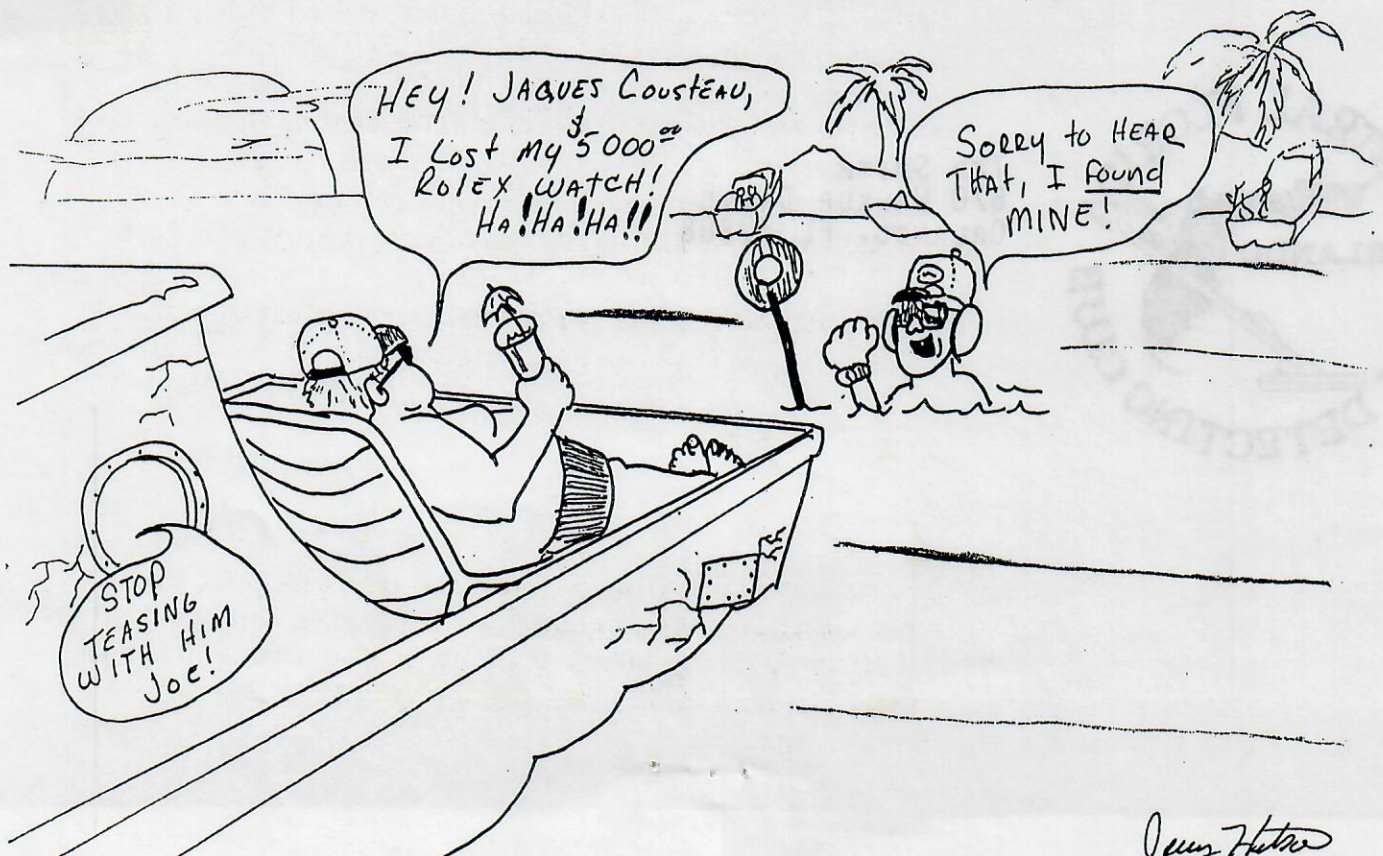 HEY! JAQUES COUSTEAU,
I LOST MY $5000.00
ROLEX WATCH!
HA!HA!HA!!
SORRY to HEAR
THAT, I found
MINE!
STOP
TEASING
WITH HIM
JOE!